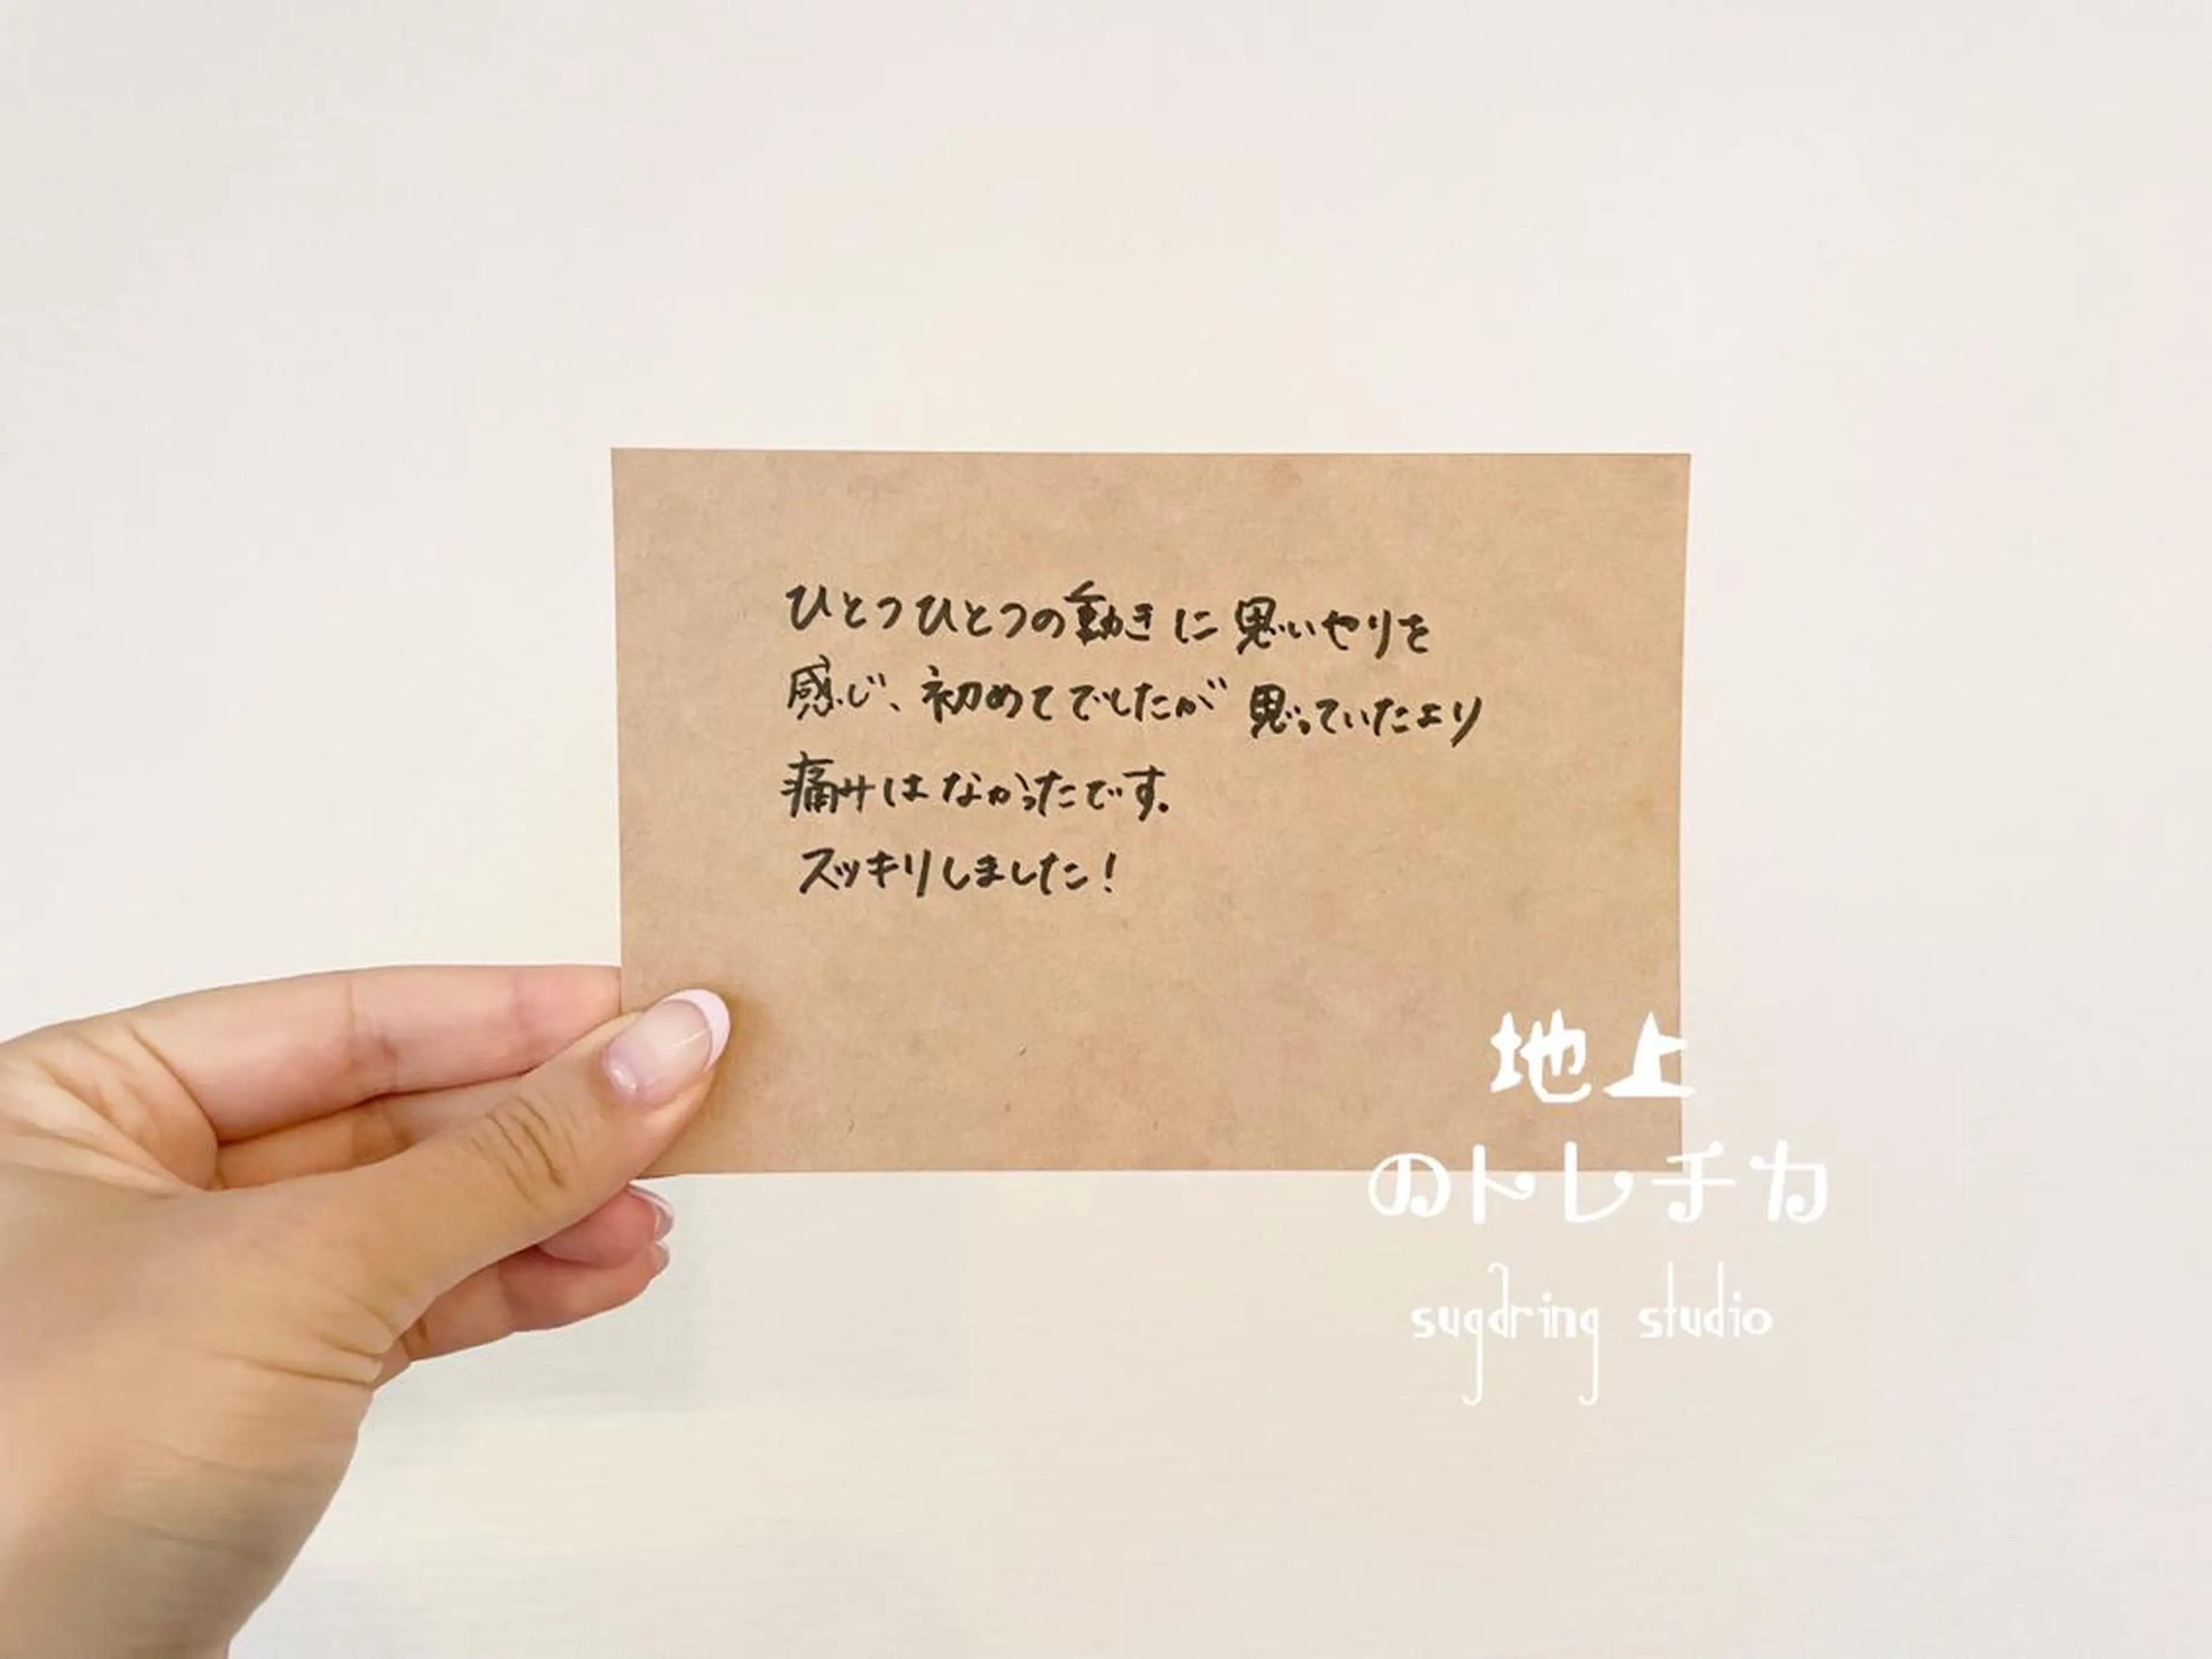 ひとつひとつの動きに思いやりを
感じ、初めてでしたが思っていたより
痛みはなかったです。
スッキリしました!
地上
のトレチカ
sugaring studio